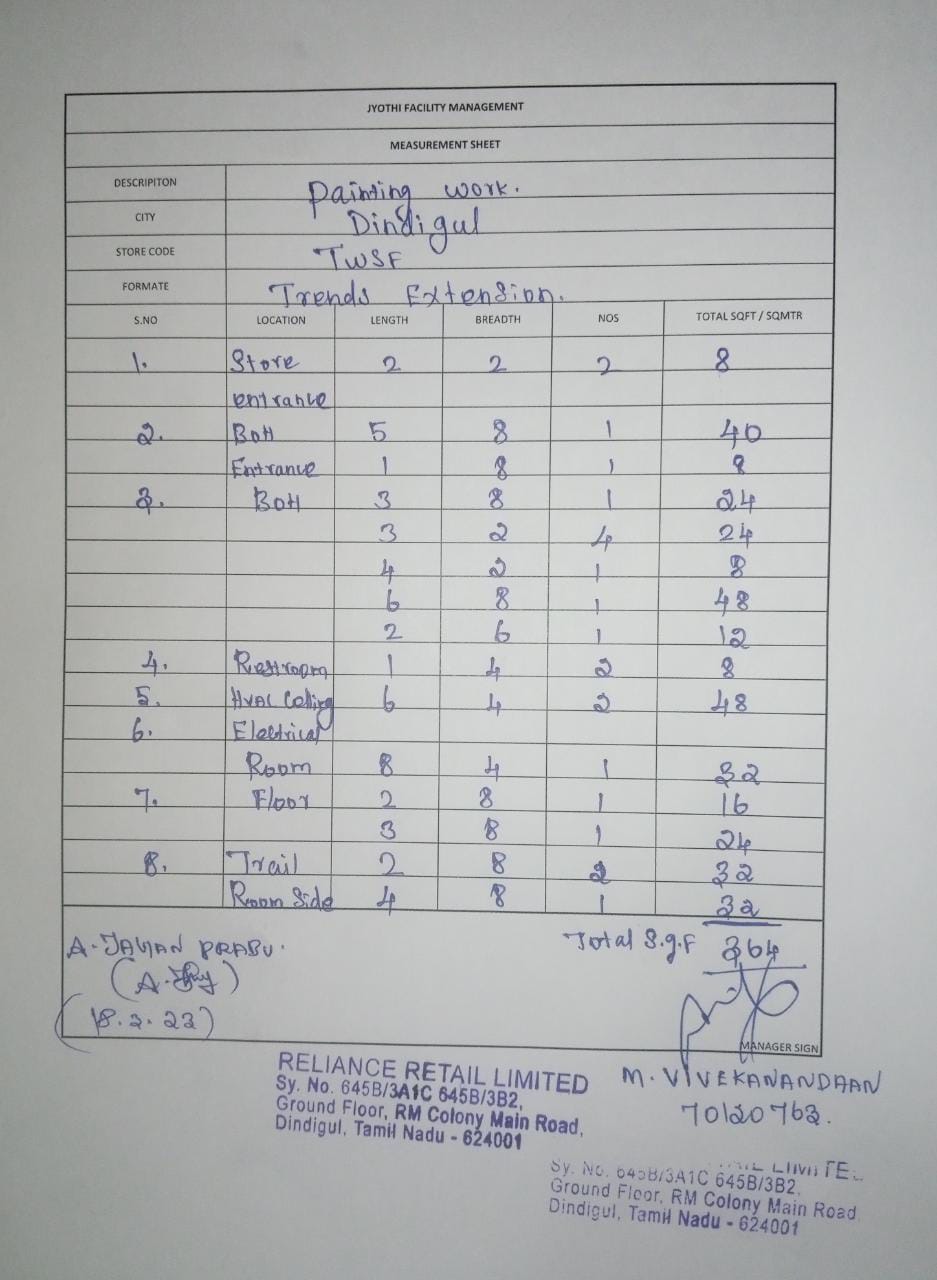 JYOTHI FACILITY MANAGEMENT
MEASUREMENT SHEET
DESCRIPITON Painting work.
CITY Dindigul
STORE CODE TWSF
FORMATE Trends Extension.
S.NO LOCATION LENGTH BREADTH NOS TOTAL SQFT / SQMTR
1. Store 2 2 2 8
entrance
2. BOH 5 8 1 40
Entrance 1 8 1 8
3. BOH 3 8 1 24
3 2 4 24
4 2 1 8
6 8 1 48
2 6 1 12
4. Restroom 1 4 2 8
5. HVAC Ceiling 6 4 2 48
6. Electrical
Room 8 4 1 32
7. Floor 2 8 1 16
3 8 1 24
8. Trail 2 8 2 32
Room Side 4 8 1 32
Total S.q.F 364
A. JAYAN PRABU.
MANAGER SIGN
M. VIVEKANANDAAN
70120763.
RELIANCE RETAIL LIMITED
Sy. No. 645B/3A1C 645B/3B2,
Ground Floor, RM Colony Main Road,
Dindigul, Tamil Nadu - 624001
Sy. No. 645B/3A1C 645B/3B2,
Ground Floor, RM Colony Main Road
Dindigul, Tamil Nadu - 624001